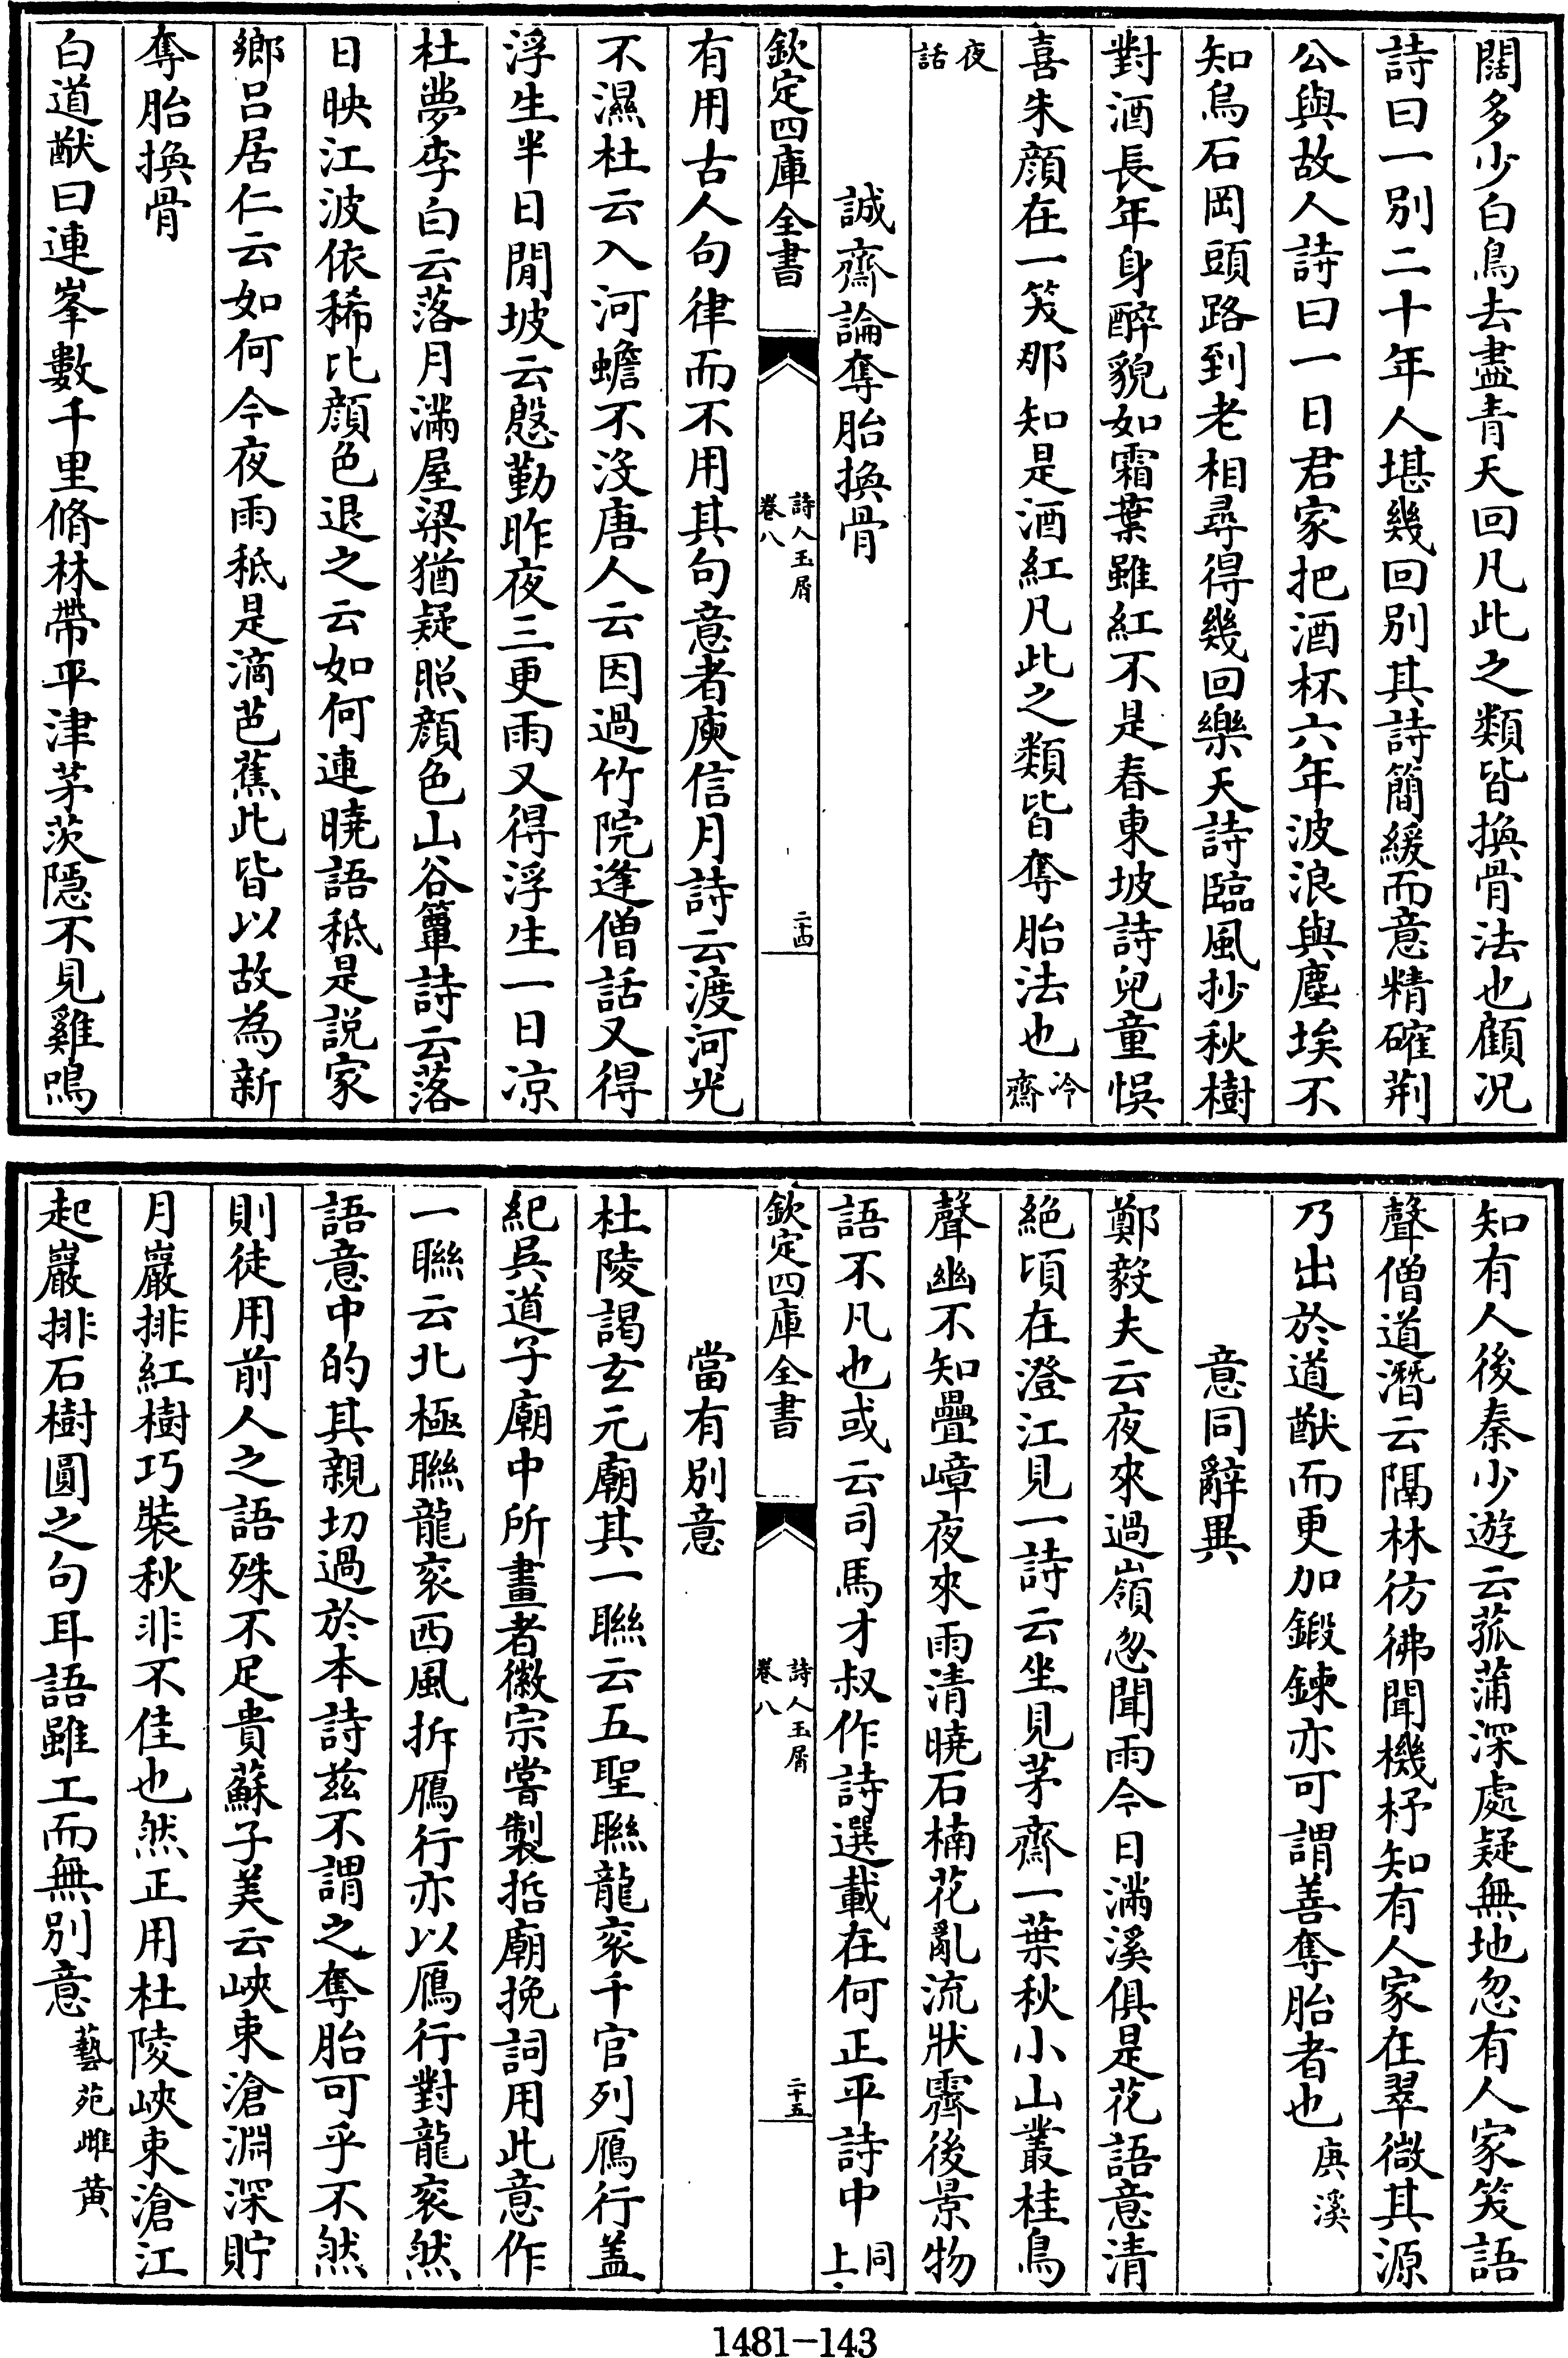 闊多少白鳥去盡青天回凡此之類皆換骨法也顧况
詩曰一別二十年人堪幾回別其詩簡緩而意精確荆
公與故人詩曰一日君家把酒杯六年波浪與塵埃不
知烏石岡頭路到老相尋得幾回樂天詩臨風抄秋樹
對酒長年身醉貌如霜葉雖紅不是春東坡詩兒童悞
喜朱顔在一笑那知是酒紅凡此之類皆奪胎法也冷齋
夜話
誠齋論奪胎換骨
欽定四庫全書
詩人玉屑
卷八
二十四
有用古人句律而不用其句意者庾信月詩云渡河光
不濕杜云入河蟾不没唐人云因過竹院逢僧話又得
浮生半日閒坡云慇勤昨夜三更雨又得浮生一日凉
杜夢李白云落月滿屋梁猶疑照顔色山谷簟詩云落
日映江波依稀比顔色退之云如何連曉語秪是説家
鄉吕居仁云如何今夜雨秪是滴芭蕉此皆以故為新
奪胎換骨
白道猷曰連峯數千里脩林帶平津茅茨隱不見雞鳴
知有人後秦少遊云菰蒲深處疑無地忽有人家笑語
聲僧道潛云隔林彷彿聞機杼知有人家在翠微其源
乃出於道猷而更加鍛鍊亦可謂善奪胎者也庚溪
意同辭異
鄭毅夫云夜來過嶺忽聞雨今日滿溪俱是花語意清
絶頃在澄江見一詩云坐見茅齋一葉秋小山叢桂鳥
聲幽不知疊嶂夜來雨清曉石楠花亂流狀霽後景物
語不凡也或云司馬才叔作詩選載在何正平詩中同上
欽定四庫全書
詩人玉屑
卷八
二十五
當有別意
杜陵謁玄元廟其一聯云五聖聯龍衮千官列鴈行盖
紀吳道子廟中所畫者徽宗嘗製哲廟挽詞用此意作
一聯云北極聯龍衮西風拆鴈行亦以鴈行對龍衮然
語意中的其親切過於本詩兹不謂之奪胎可乎不然
則徒用前人之語殊不足貴蘇子美云峽束滄淵深貯
月巖排紅樹巧裝秋非不佳也然正用杜陵峽束滄江
起巖排石樹圓之句耳語雖工而無別意藝苑雌黄
1481-143